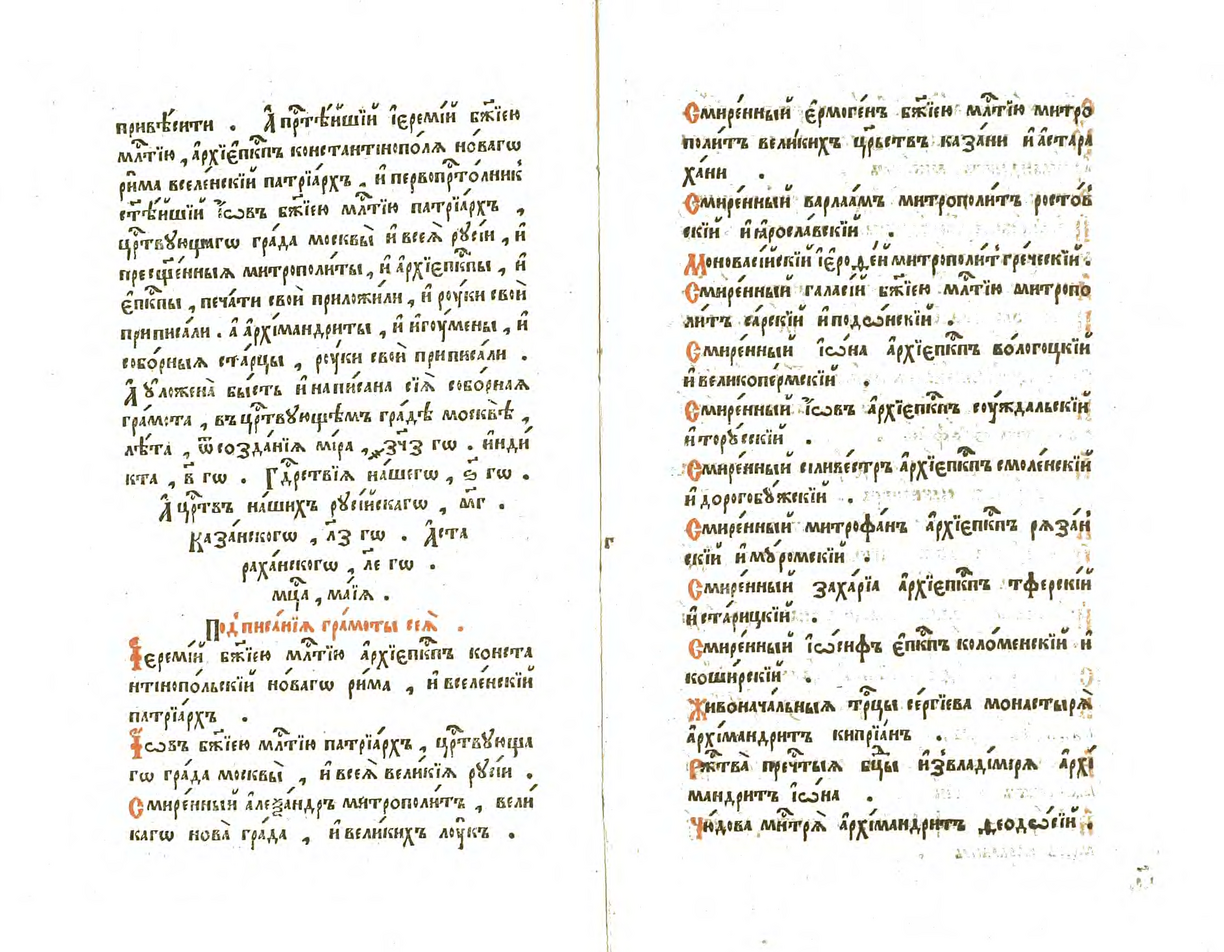 привѣсити . А҆ прⷭ҇тѣ́йшїй і҆еремі́й бж҃їею
млⷭ҇тїю , а҆рхїе҆пⷭ҇кпъ константінопо́лѧ но́вагѡ
ри́ма вселе́нскїй патрїа́рхъ , и҆ первопрⷭ҇то́лник
ст҃ѣ́йшїй і҆́ѡвъ бж҃їею млⷭ҇тїю патрїа́рхъ ,
црⷭ҇твꙋющагѡ гра́да москвы̀ и҆ всеѧ̀ рꙋсі́и , и҆
пресщ҃е́нныѧ митрополи́ты , и҆ а҆рхїе҆пⷭ҇кпы , и҆
є҆пⷭ҇кпы , печа́ти своѝ приложи́ли , и҆ рꙋ́ки своѝ
приписа́ли . а҆ а҆рхімандри́ты , и҆ и҆гꙋ́мены , и҆
собо́рныѧ ста́рцы , рꙋ́ки своѝ приписа́ли .
А҆ ᲂу҆ложена̀ бы́сть и҆ написана сїѧ̀ собо́рнаѧ
гра́мота , въ црⷭ҇твꙋющѣмъ гра́дѣ москвѣ̀ ,
лѣ́та , ѿ созда́нїѧ мі́ра , ҂зч҃з гѡ . и҆нди́
кта , в҃ гѡ . Гдⷭ҇рствїѧ на́шегѡ , ѕ҃ гѡ .
А҆ црⷭ҇твъ на́шихъ рꙋсі́йскагѡ , м҃г .
Каза́нскогѡ , л҃з гѡ . А҆ста
раха́нскогѡ , л҃е гѡ .
мцⷭ҇а , ма́їѧ .
Под̾писа́нїѧ гра́моты сеѧ̀ .
І҆еремі́й бж҃їею млⷭ҇тїю а҆рхїе҆пⷭ҇кпъ конста
нтінопо́льскїй но́вагѡ ри́ма , и҆ вселе́нскїй
патрїа́рхъ .
І҆́ѡвъ бж҃їею млⷭ҇тїю патрїа́рхъ , црⷭ҇твꙋюща
гѡ гра́да москвы̀ , и҆ всеѧ̀ вели́кїѧ рꙋсі́и .
Смире́нный а҆леѯа́ндръ митрополи́тъ , вели́
кагѡ нова̀ гра́да , и҆ вели́кихъ лꙋ́къ .
Смире́нный є҆рмоге́нъ бж҃їею млⷭ҇тїю митро
поли́тъ вели́кихъ црⷭ҇ьствъ каза́ни и҆ а҆стара
ха́ни .
Смире́нный варлаа́мъ митрополи́тъ росто́в
скїй и҆ ꙗ҆росла́вскїй .
Моновасі́йскїй і҆ероде́й митрополи́т гре́ческїй .
Смире́нный гала́сїй бж҃їею млⷭ҇тїю митропо
ли́тъ са́рскїй и҆ подѡ́нскїй .
Смире́нный і҆ѡ́на а҆рхїе҆пⷭ҇кпъ во́логоцкїй
и҆ великопе́рмскїй .
Смире́нный і҆́ѡвъ а҆рхїе҆пⷭ҇кпъ сꙋ́ждальскїй
и҆ торꙋ́сскїй .
Смире́нный сіливе́стръ а҆рхїе҆пⷭ҇кпъ смоле́нскїй
и҆ дорогобꙋ́жскїй .
Смире́нный митрофа́нъ а҆рхїе҆пⷭ҇кпъ рѧза́н
скїй и҆ мꙋ́ромскїй .
Смире́нный заха́рїа а҆рхїе҆пⷭ҇кпъ тфе́рскїй
и҆ ста́рицкїй .
Смире́нный і҆ѡ́сифъ є҆пⷭ҇кпъ коло́менскїй и҆
коши́рскїй .
Живонача́льныѧ трⷪ҇цы се́ргїева монастырѧ̀
а҆рхімандри́тъ кипрїа́нъ .
Ржⷭ҇тва̀ пречⷭ҇тыѧ бц҃ы и҆з̾ влади́мірѧ а҆рхі
мандри́тъ і҆ѡ́на .
Чю́дова мн҃трѧ̀ а҆рхімандри́тъ ѳеодѡ́сїй .